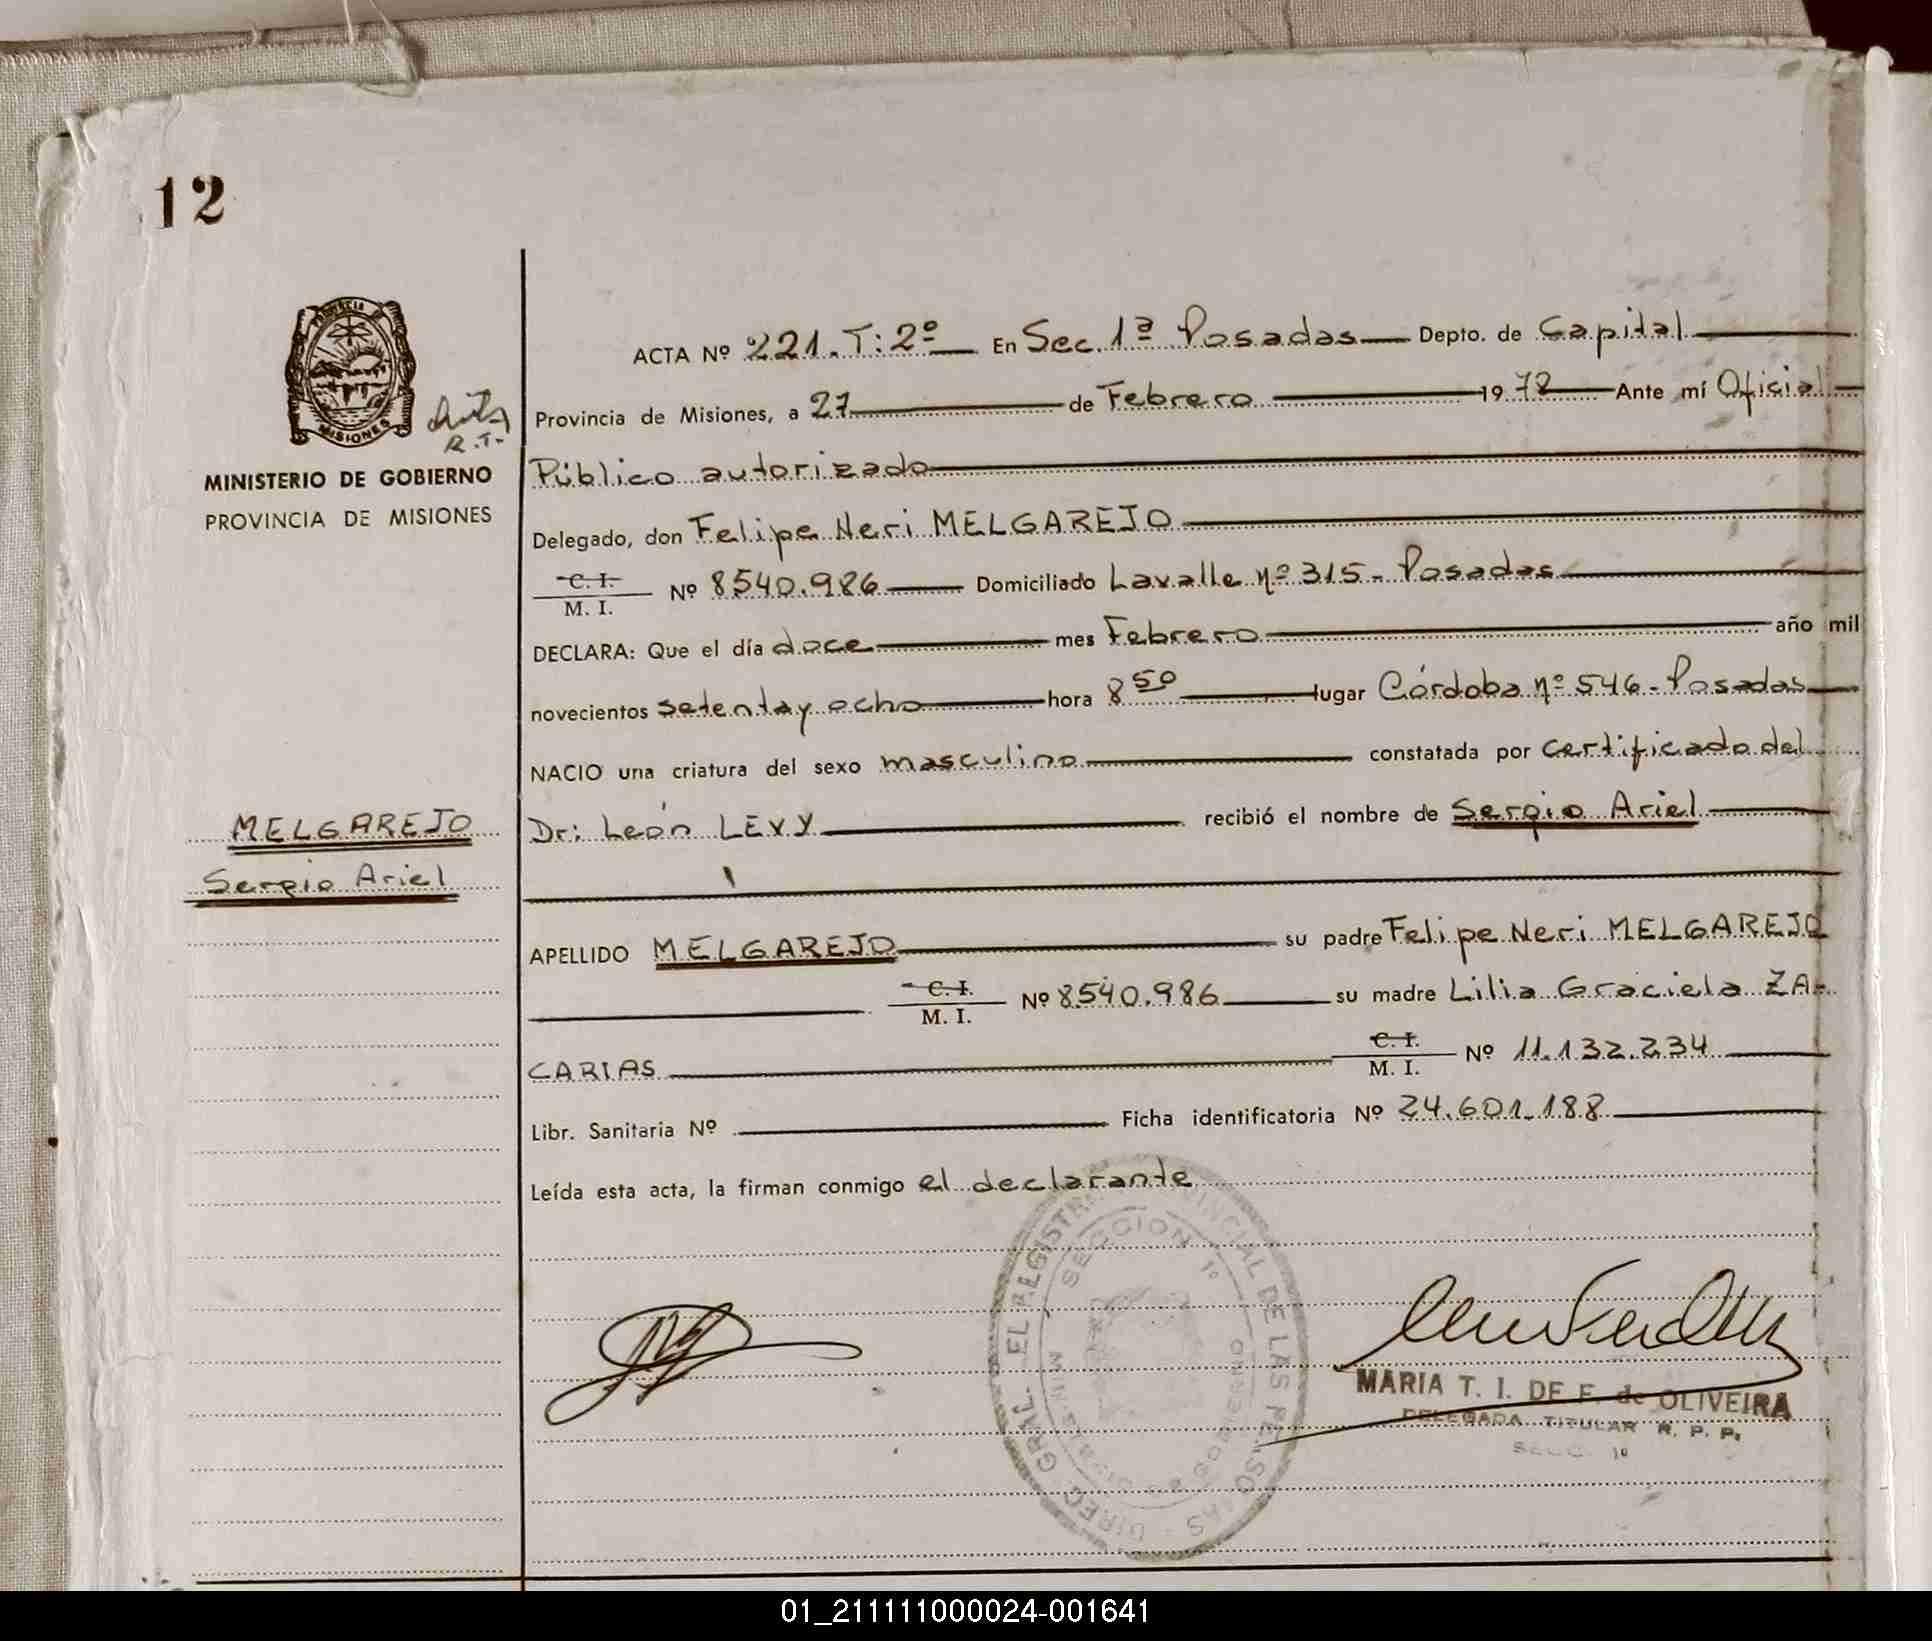 12
PROVINCIA DE
MISIONES
R.T.
MINISTERIO DE GOBIERNO
PROVINCIA DE MISIONES
MELGAREJO
Sergio Ariel
ACTA Nº 221. T: 2º En Sec. 1ª Posadas Depto. de Capital
Provincia de Misiones, a 27 de Febrero 1978 Ante mí Oficial
Público autorizado
Delegado, don Felipe Neri MELGAREJO
C. I.
M. I. Nº 8540.986 Domiciliado Lavalle nº 315 - Posadas
DECLARA: Que el día doce mes Febrero año mil
novecientos setenta y ocho hora 8 50 lugar Córdoba nº 546 - Posadas
NACIO una criatura del sexo masculino constatada por certificado del
Dr: León LEVY recibió el nombre de Sergio Ariel
APELLIDO MELGAREJO su padre Felipe Neri MELGAREJO
C. I.
M. I. Nº 8540.986 su madre Lilia Graciela ZA-
CARIAS C. I.
M. I. Nº 11.132.234
Libr. Sanitaria Nº Ficha identificatoria Nº 24.601.188
Leída esta acta, la firman conmigo el declarante
SECCION 1º
MARIA T. I. DE F. de OLIVEIRA
DELEGADA TITULAR R. P. P.
SECC. 1º
01_211111000024-001641